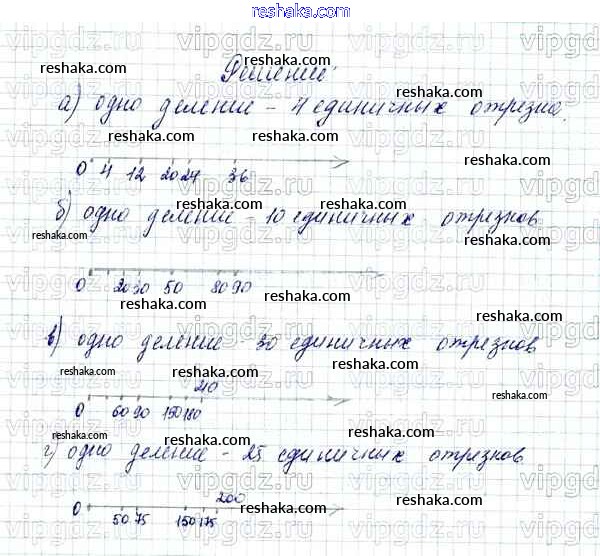 reshaka.com
Решение:
а) одно деление - 4 единичных отрезка.
0 4 12 20 24 36
б) одно деление - 10 единичных отрезков
0 20 30 50 80 90
в) одно деление - 30 единичных отрезков
210
0 60 90 150 180
г) одно деление - 25 единичных отрезков
200
0 50 75 150 175